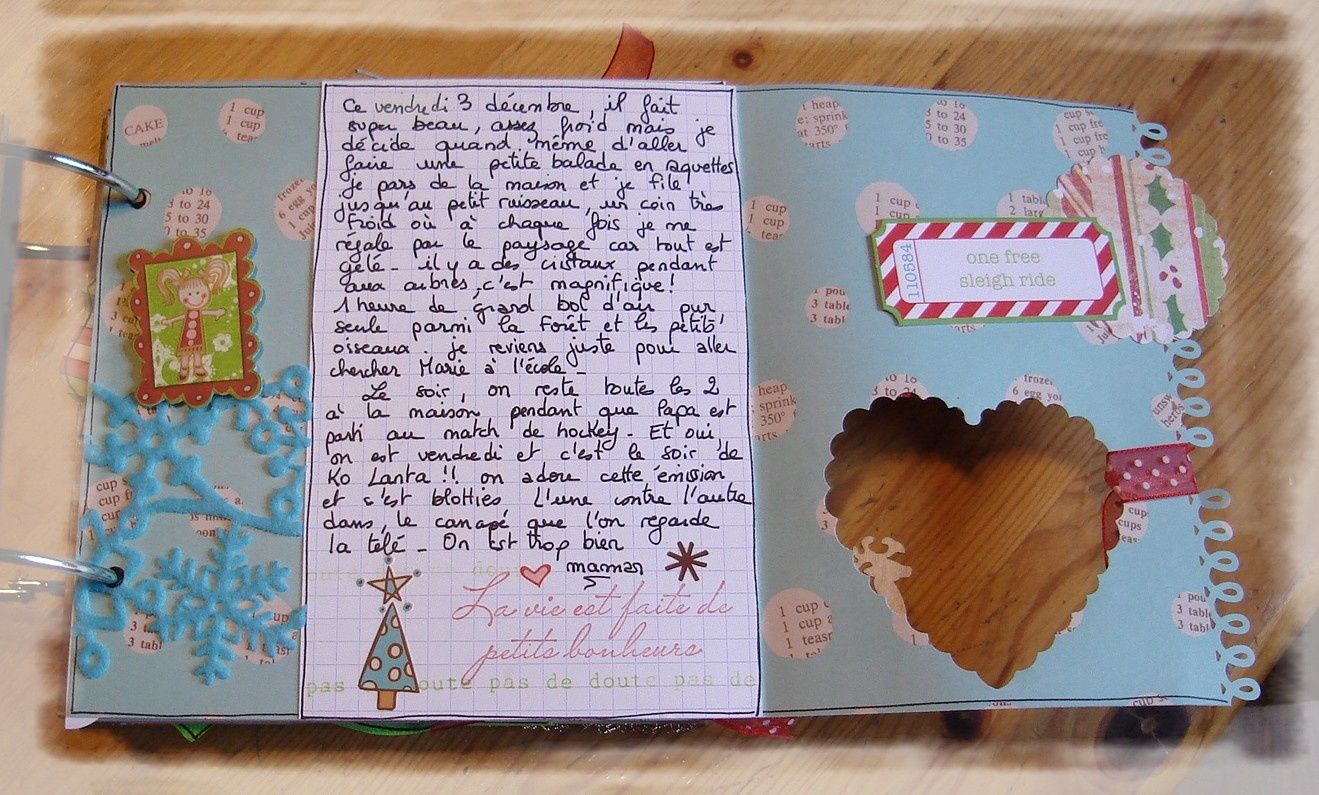 CAKE
1 cup
1 cup
teas
3 to 24
5 to 30
3 to 35
froze
6 egg y
1 cup
Ce vendredi 3 décembre, il fait
super beau, assez froid mais je
décide quand même d'aller
faire une petite balade en raquettes
je pars de la maison et je file
jusqu'au petit ruisseau, un coin très
froid où à chaque fois je me
régale par le paysage car tout est
gélé - il y a des cistaux pendant
aux arbres, c'est magnifique!
1 heure de grand bol d'air pur,
seule parmi la forêt et les petits
oiseaux. je reviens juste pour aller
chercher Marie à l'école -
Le soir, on reste toutes les 2
à la maison pendant que Papa est
parti au match de hockey - Et oui,
on est vendredi et c'est le soir de
Ko Lanta !! on adore cette émission
et s'est blotties l'une contre l'autre
dans le canapé que l'on regarde
la télé - On est trop bien
maman
La vie est faite de
petits bonheurs
pas oute pas de doute pas de
1 heap
sprink
at 350°
to 16
3 to 24
5 to 30
0 to 35
cup
1 cup fre
1 cup h
1 cup
1 cup
teas
1 cup
1 cup
1 tabl
2 larg
110584
one free
sleigh ride
pou
3 table
3 tabl
arts
heap
sprink
350°
arts
to 16
3 to 24
froze
6 egg yo
1 cup
unsw
cups
1 cup
1 cup
1 cup
teasr
pou
3 tabl
3 tabl
cup s